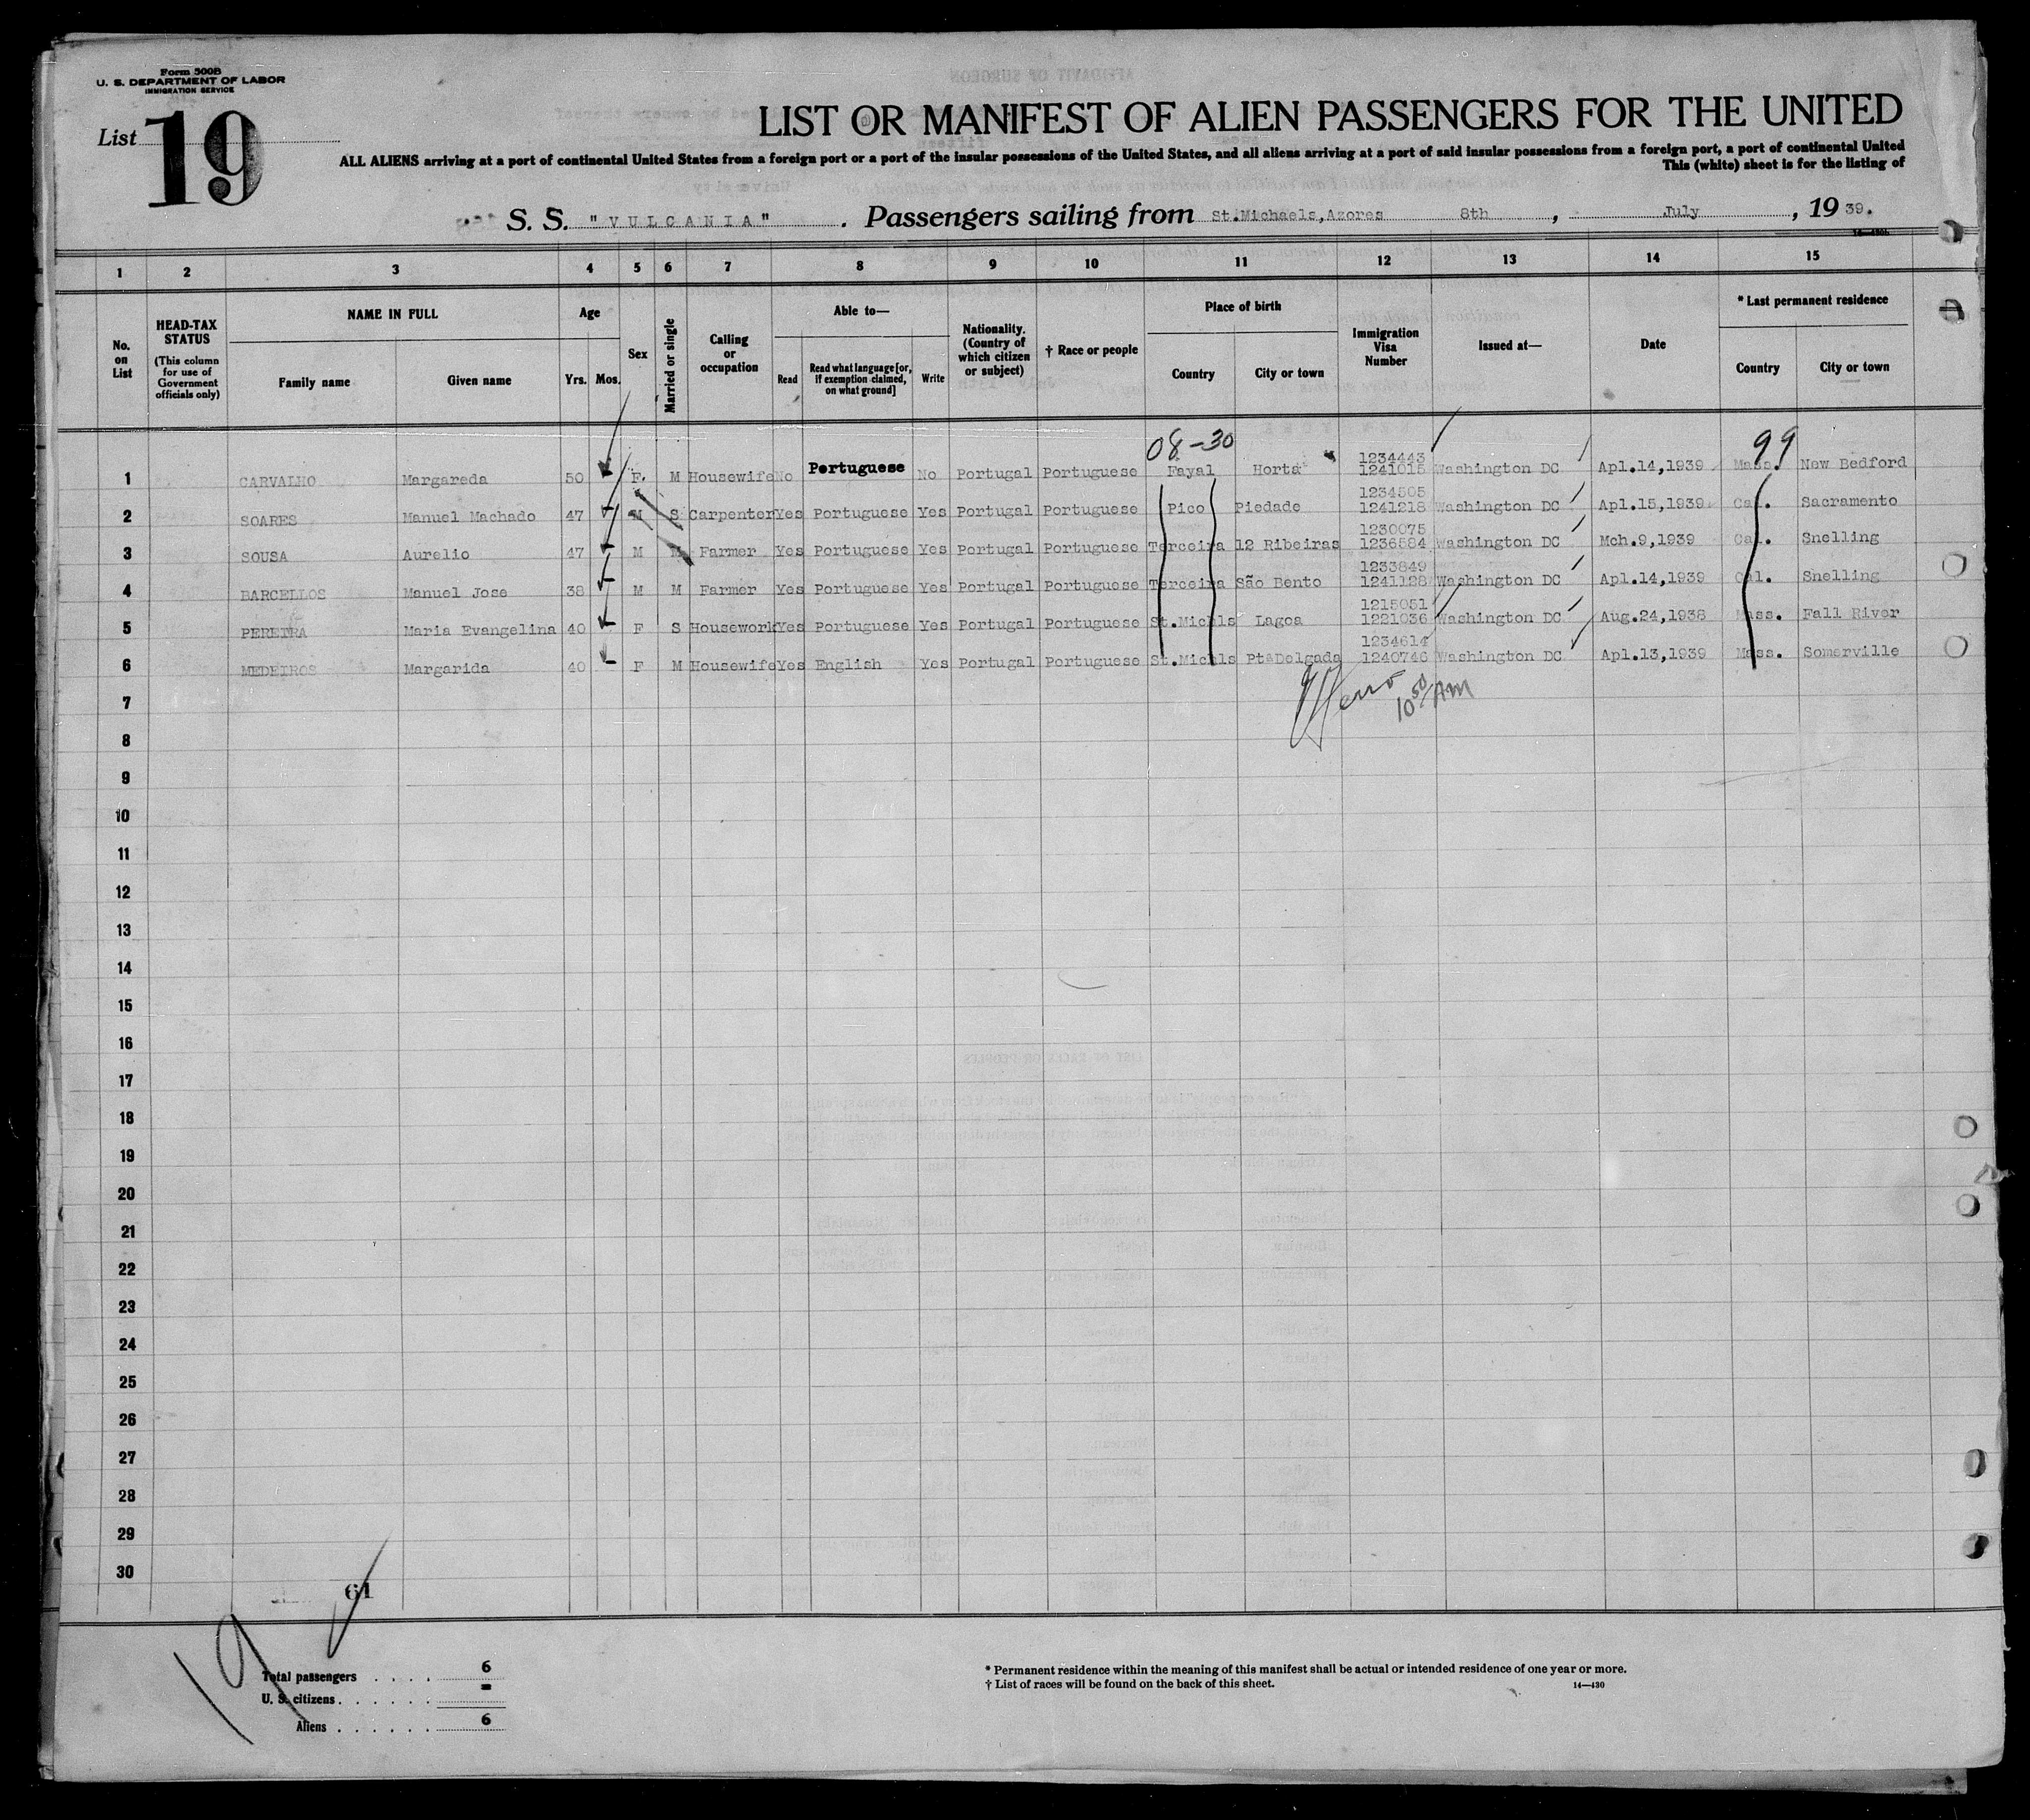 Form 500B
U. S. DEPARTMENT OF LABOR
IMMIGRATION SERVICE
List 19
LIST OR MANIFEST OF ALIEN PASSENGERS FOR THE UNITED
ALL ALIENS arriving at a port of continental United States from a foreign port or a port of the insular possessions of the United States, and all aliens arriving at a port of said insular possessions from a foreign port, a port of continental United
This (white) sheet is for the listing of
S. S. "VULCANIA". Passengers sailing from St.Michaels,Azores 8th, July, 19 39.
1 2 3 4 5 6 7 8 9 10 11 12 13 14 15
No. on List
HEAD-TAX STATUS (This column for use of Government officials only)
NAME IN FULL
Family name Given name
Age
Yrs. Mos.
Sex
Married or single
Calling or occupation
Able to—
Read Read what language [or, if exemption claimed, on what ground] Write
Nationality. (Country of which citizen or subject)
† Race or people
Place of birth
Country City or town
Immigration Visa Number
Issued at—
Date
* Last permanent residence
Country City or town
08-30 99
1234443
1 CARVALHO Margareda 50 F. M Housewife No Portuguese No Portugal Portuguese Fayal Horta 1241015 Washington DC Apl.14,1939 Mass. New Bedford
1234505
2 SOARES Manuel Machado 47 M S Carpenter Yes Portuguese Yes Portugal Portuguese Pico Piedade 1241218 Washington DC Apl.15,1939 Cal. Sacramento
1230075
3 SOUSA Aurelio 47 M M Farmer Yes Portuguese Yes Portugal Portuguese Terceira 12 Ribeiras 1236584 Washington DC Mch.9,1939 Cal. Snelling
1233849
4 BARCELLOS Manuel Jose 38 M M Farmer Yes Portuguese Yes Portugal Portuguese Terceira São Bento 1241128 Washington DC Apl.14,1939 Cal. Snelling
1215051
5 PEREIRA Maria Evangelina 40 F S Housework Yes Portuguese Yes Portugal Portuguese St.Michls Lagoa 1221036 Washington DC Aug.24,1938 Mass. Fall River
1234614
6 MEDEIROS Margarida 40 F M Housewife Yes English Yes Portugal Portuguese St.Michls PtªDelgada 1240746 Washington DC Apl.13,1939 Mass. Somerville
10 50 AM
7
8
9
10
11
12
13
14
15
16
17
18
19
20
21
22
23
24
25
26
27
28
29
30
61
19
Total passengers . . . . 6
U. S. citizens . . . . . . =
Aliens . . . . . . 6
* Permanent residence within the meaning of this manifest shall be actual or intended residence of one year or more.
† List of races will be found on the back of this sheet. 14—430